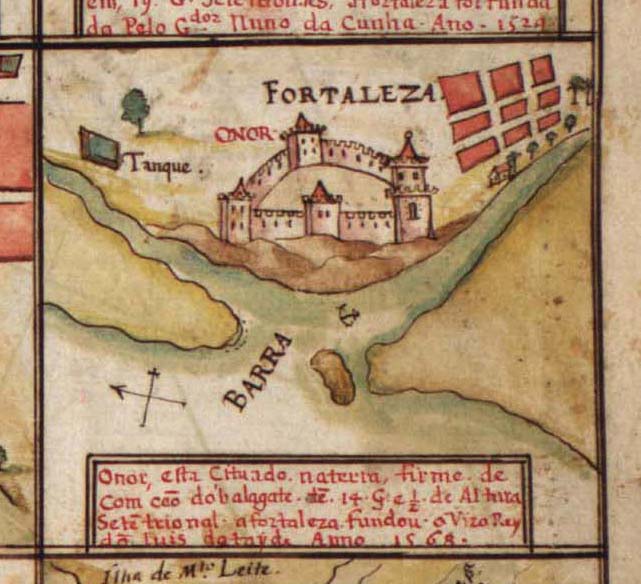 em, 19. G. Setētrionales, afortaleza foi funda
da Pelo Gdor Nuno da Cunha. Ano. 1529
FORTALEZA
ONOR
Tanque.
BARRA
Onor, esta Cituado. naterra, firme. de
Com cão do balagate tē. 14. G. e 1/2. de Altura
Setētrional. a fortaleza fundou. o Vizo Rey
dō Luis dataýde Anno 1568.
Ilha de Mto Leite.